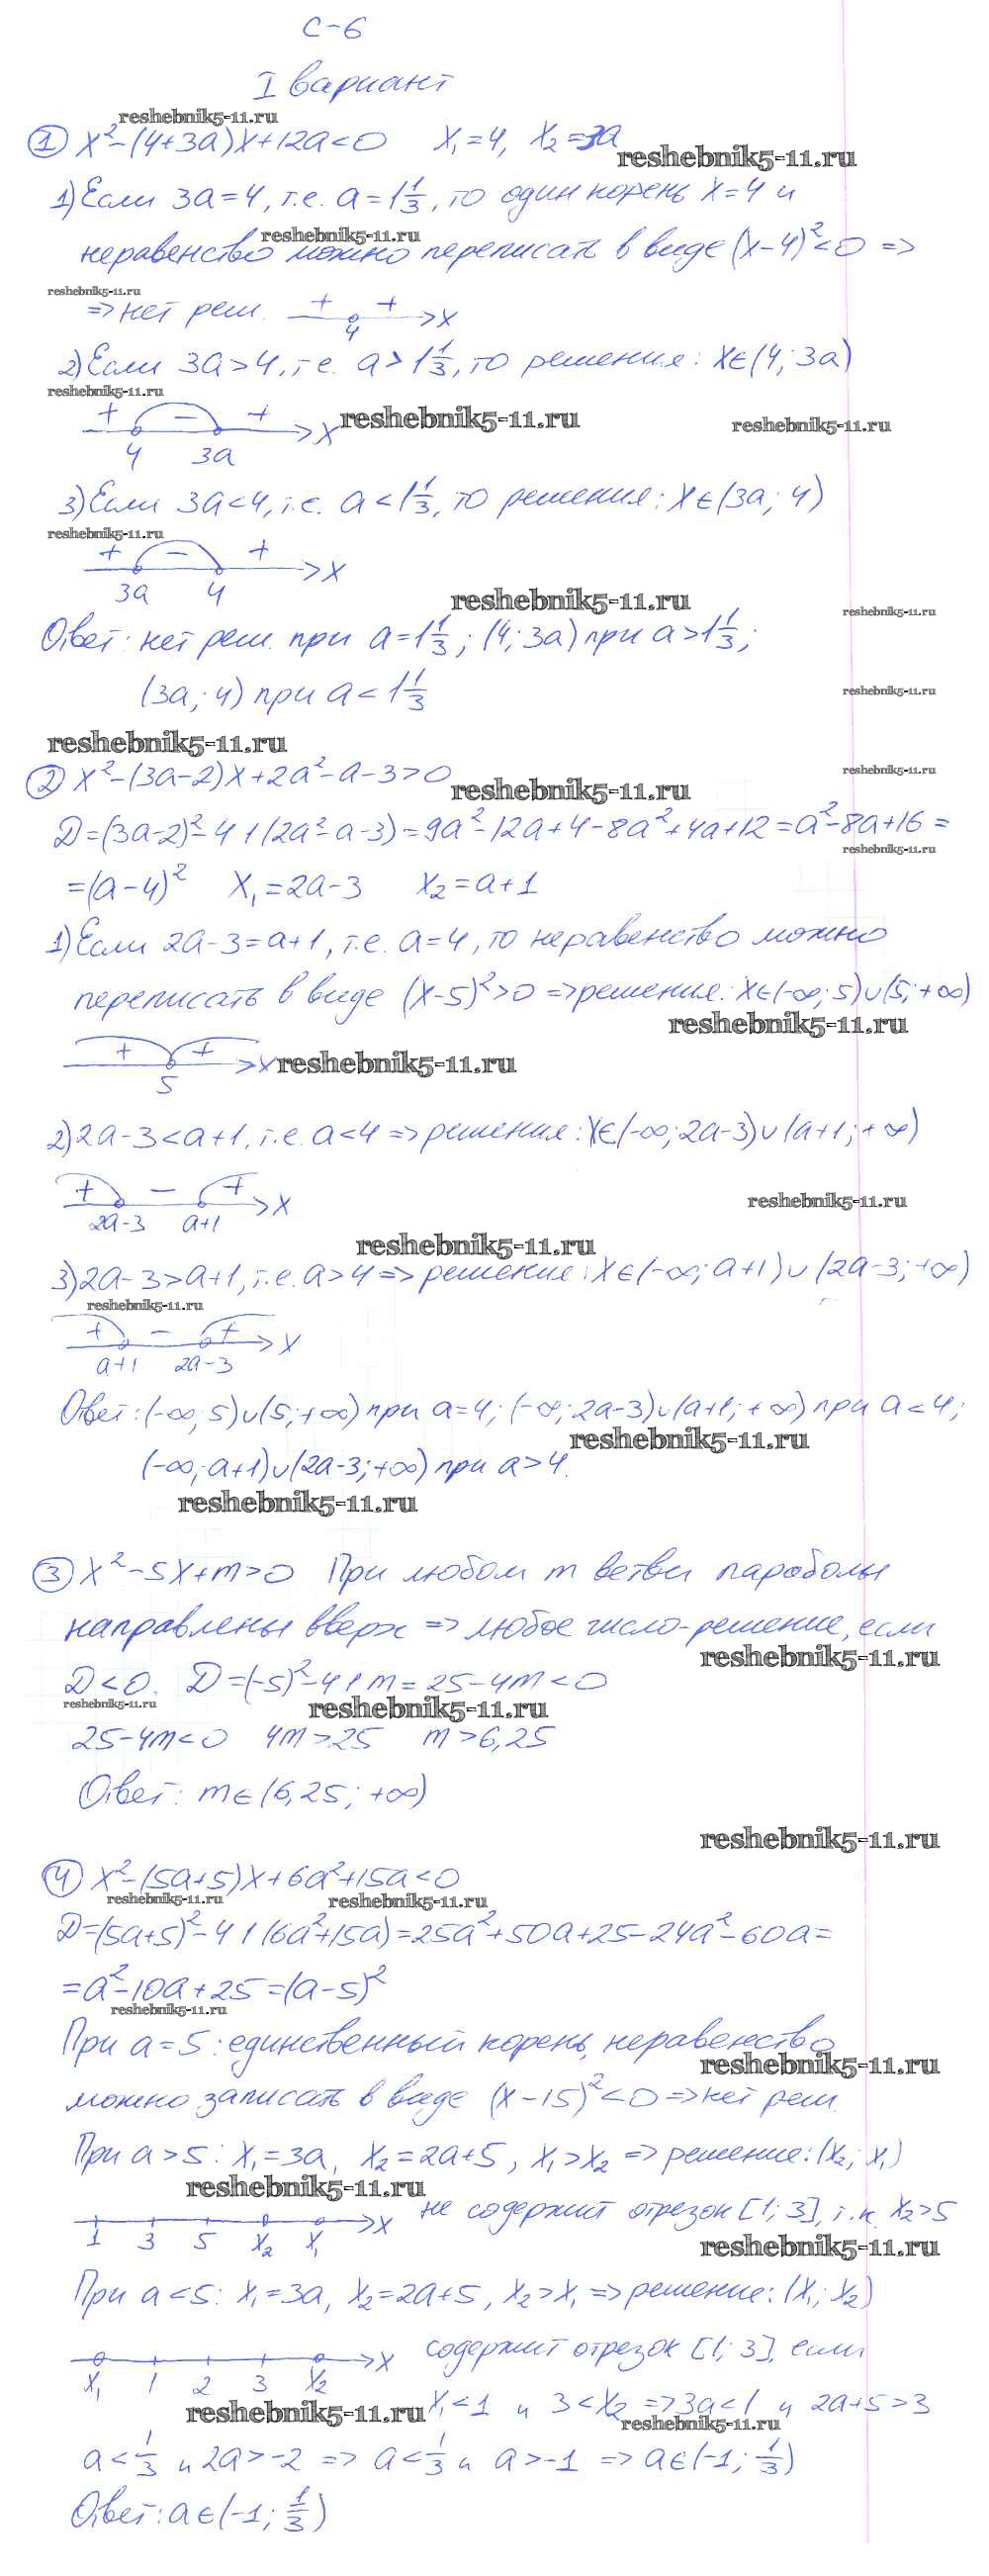 С-6
I вариант
reshebnik5-11.ru
① x²-(4+3a)x+12a<0   x₁=4, x₂=3a
reshebnik5-11.ru
1) Если 3a=4, т.е. a=1 1/3, то один корень x=4 и
reshebnik5-11.ru
неравенство можно переписать в виде (x-4)²<0 =>
reshebnik5-11.ru
=> нет реш. + + 4 x
2) Если 3a>4, т.е. a>1 1/3, то решения: x∈(4; 3a)
reshebnik5-11.ru
+ - + x
reshebnik5-11.ru
reshebnik5-11.ru
4 3a
3) Если 3a<4, т.е. a<1 1/3, то решения: x∈(3a; 4)
reshebnik5-11.ru
+ - + x
3a 4
reshebnik5-11.ru
reshebnik5-11.ru
Ответ: нет реш. при a=1 1/3; (4; 3a) при a>1 1/3;
(3a; 4) при a<1 1/3
reshebnik5-11.ru
reshebnik5-11.ru
② x²-(3a-2)x+2a²-a-3>0
reshebnik5-11.ru
reshebnik5-11.ru
D=(3a-2)²-4·1·(2a²-a-3)=9a²-12a+4-8a²+4a+12=a²-8a+16=
reshebnik5-11.ru
=(a-4)²   x₁=2a-3   x₂=a+1
1) Если 2a-3=a+1, т.е. a=4, то неравенство можно
переписать в виде (x-5)²>0 => решения: x∈(-∞; 5)∪(5; +∞)
reshebnik5-11.ru
+ + x
reshebnik5-11.ru
5
2) 2a-3<a+1, т.е. a<4 => решения: x∈(-∞; 2a-3)∪(a+1; +∞)
+ - + x
reshebnik5-11.ru
2a-3 a+1
reshebnik5-11.ru
3) 2a-3>a+1, т.е. a>4 => решения: x∈(-∞; a+1)∪(2a-3; +∞)
reshebnik5-11.ru
+ - + x
a+1 2a-3
Ответ: (-∞; 5)∪(5; +∞) при a=4; (-∞; 2a-3)∪(a+1; +∞) при a<4;
reshebnik5-11.ru
(-∞; a+1)∪(2a-3; +∞) при a>4.
reshebnik5-11.ru
③ x²-5x+m>0 При любом m ветви параболы
направлены вверх => любое число - решение, если
reshebnik5-11.ru
D<0. D=(-5)²-4·1·m=25-4m<0
reshebnik5-11.ru
reshebnik5-11.ru
25-4m<0   4m>25   m>6,25
Ответ: m∈(6,25; +∞)
reshebnik5-11.ru
④ x²-(5a+5)x+6a²+15a<0
reshebnik5-11.ru
reshebnik5-11.ru
D=(5a+5)²-4·1·(6a²+15a)=25a²+50a+25-24a²-60a=
=a²-10a+25=(a-5)²
reshebnik5-11.ru
При a=5: единственный корень, неравенство
reshebnik5-11.ru
можно записать в виде (x-15)²<0 => нет реш.
При a>5: x₁=3a, x₂=2a+5, x₁>x₂ => решение: (x₂; x₁)
reshebnik5-11.ru
не содержит отрезок [1; 3], т.к. x₂>5
x
1 3 5 x₂ x₁
reshebnik5-11.ru
При a<5: x₁=3a, x₂=2a+5, x₂>x₁ => решение: (x₁; x₂)
x содержит отрезок [1; 3], если
x₁ 1 2 3 x₂
reshebnik5-11.ru
x₁<1 и 3<x₂ => 3a<1 и 2a+5>3
reshebnik5-11.ru
a<1/3 и 2a>-2 => a<1/3 и a>-1 => a∈(-1; 1/3)
Ответ: a∈(-1; 1/3)